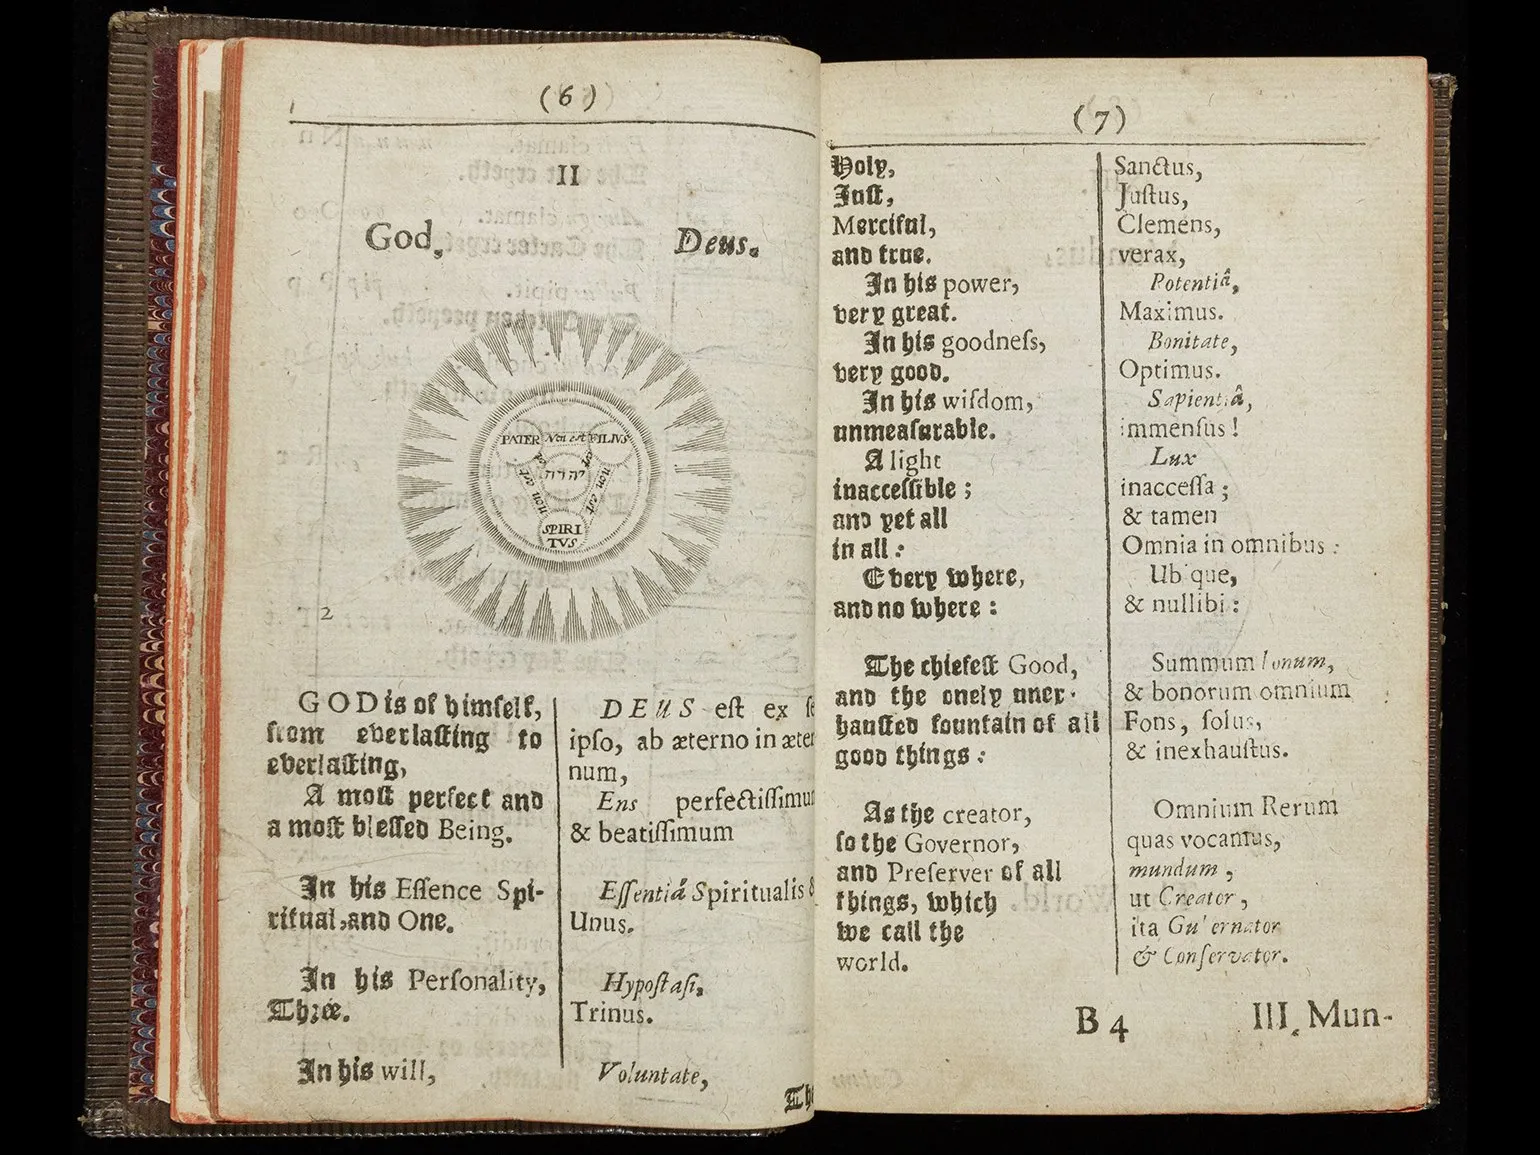 (6)
II
God,
Deus.
PATER Non est FILIUS
est
est
יהוה
est
non est
non est
SPIRI
TVS
2
GOD is of himself,
from everlaſting to
everlaſting,
A moſt perfect and
a moſt bleſſed Being.
In his Eſſence Spi-
ritual, and One.
In his Perſonality,
Thꝛee.
In his will,
DEUS eſt ex ſe
ipſo, ab æterno in æter
num,
Ens perfectiſſimum
& beatiſſimum
Eſſentiâ Spiritualis &
Unus.
Hypoſtaſi,
Trinus.
Voluntate,
(7)
Holy,
Juſt,
Merciful,
and true.
In his power,
very great.
In his goodneſs,
very good.
In his wiſdom,
unmeaſurable.
A light
inacceſſible ;
and yet all
in all :
Every where,
and no where :
The chiefeſt Good,
and the onely unex-
hauſted fountain of all
good things :
As the creator,
ſo the Governor,
and Preſerver of all
things, which
we call the
world.
Sanctus,
Juſtus,
Clemens,
verax,
Potentiâ,
Maximus.
Bonitate,
Optimus.
Sapientiâ,
immenſus !
Lux
inacceſſa ;
& tamen
Omnia in omnibus :
Ubique,
& nullibi :
Summum bonum,
& bonorum omnium
Fons, ſolus,
& inexhauſtus.
Omnium Rerum
quas vocamus,
mundum ,
ut Creator ,
ita Gubernator
& Conſervator.
B 4
III. Mun-